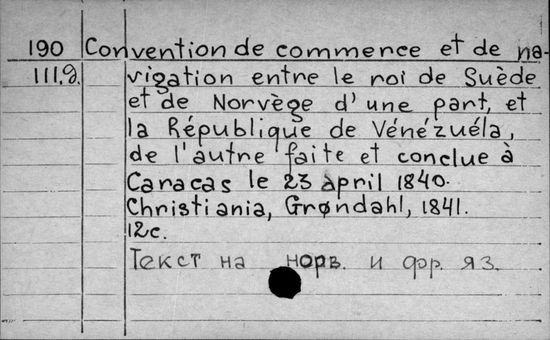 190 Convention de commerce et de na-
111.g. vigation entre le roi de Suède
et de Norvège d'une part, et
la République de Vénézuéla,
de l'autre faite et conclue à
Caracas le 23 april 1840.
Christiania, Grøndahl, 1841.
12c.
Текст на норв. и фр. яз.